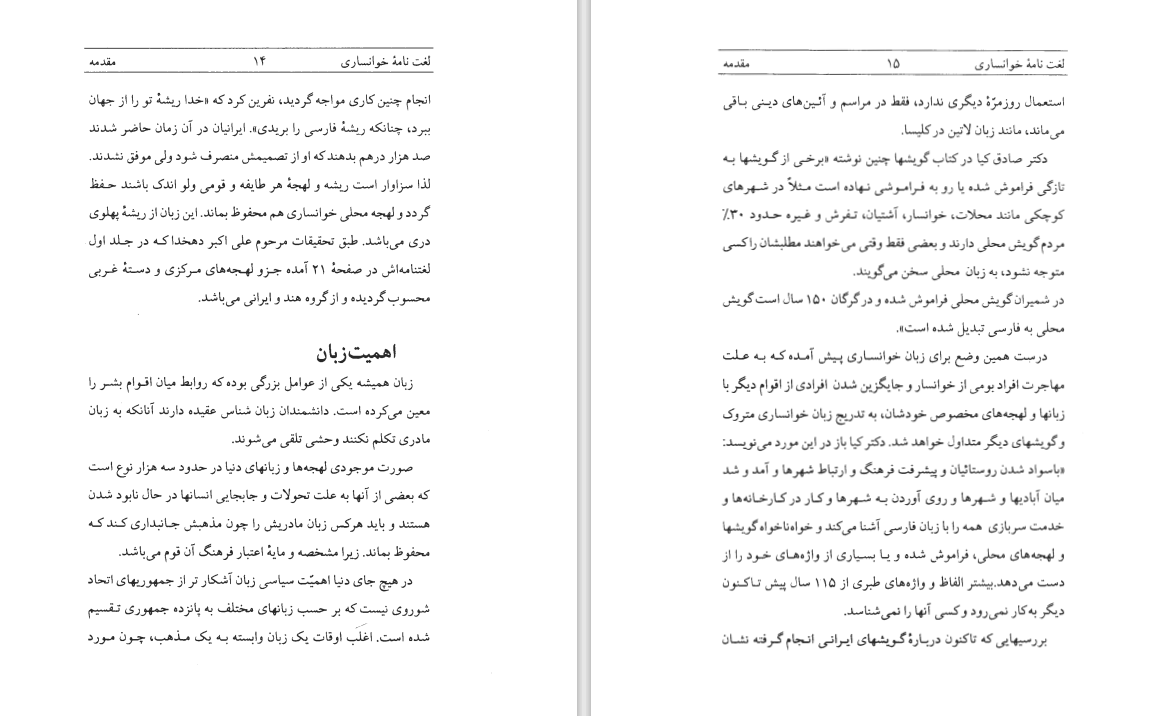 لغت نامهٔ خوانساری ۱۴ مقدمه
انجام چنین کاری مواجه گردید، نفرین کرد که «خدا ریشهٔ تو را از جهان
ببرد، چنانکه ریشهٔ فارسی را بریدی». ایرانیان در آن زمان حاضر شدند
صد هزار درهم بدهند که او از تصمیمش منصرف شود ولی موفق نشدند.
لذا سزاوار است ریشه و لهجهٔ هر طایفه و قومی ولو اندک باشند حفظ
گردد و لهجه محلی خوانساری هم محفوظ بماند. این زبان از ریشهٔ پهلوی
دری می‌باشد. طبق تحقیقات مرحوم علی اکبر دهخدا که در جلد اول
لغتنامه‌اش در صفحهٔ ۲۱ آمده جزو لهجه‌های مرکزی و دستهٔ غربی
محسوب گردیده و از گروه هند و ایرانی می‌باشد.
اهمیت زبان
زبان همیشه یکی از عوامل بزرگی بوده که روابط میان اقوام بشر را
معین می‌کرده است. دانشمندان زبان شناس عقیده دارند آنانکه به زبان
مادری تکلم نکنند وحشی تلقی می‌شوند.
صورت موجودی لهجه‌ها و زبانهای دنیا در حدود سه هزار نوع است
که بعضی از آنها به علت تحولات و جابجایی انسانها در حال نابود شدن
هستند و باید هرکس زبان مادریش را چون مذهبش جانبداری کند که
محفوظ بماند. زیرا مشخصه و مایهٔ اعتبار فرهنگ آن قوم می‌باشد.
در هیچ جای دنیا اهمیّت سیاسی زبان آشکار تر از جمهوریهای اتحاد
شوروی نیست که بر حسب زبانهای مختلف به پانزده جمهوری تقسیم
شده است. اغلب اوقات یک زبان وابسته به یک مذهب، چون مورد
لغت نامهٔ خوانساری ۱۵ مقدمه
استعمال روزمرّهٔ دیگری ندارد، فقط در مراسم و آئین‌های دینی باقی
می‌ماند، مانند زبان لاتین در کلیسا.
دکتر صادق کیا در کتاب گویشها چنین نوشته «برخی از گویشها به
تازگی فراموش شده یا رو به فراموشی نهاده است مثلاً در شهرهای
کوچکی مانند محلات، خوانسار، آشتیان، تفرش و غیره حدود ۳۰٪
مردم گویش محلی دارند و بعضی فقط وقتی می‌خواهند مطلبشان را کسی
متوجه نشود، به زبان محلی سخن می‌گویند.
در شمیران گویش محلی فراموش شده و در گرگان ۱۵۰ سال است گویش
محلی به فارسی تبدیل شده است».
درست همین وضع برای زبان خوانساری پیش آمده که به علت
مهاجرت افراد بومی از خوانسار و جایگزین شدن افرادی از اقوام دیگر با
زبانها و لهجه‌های مخصوص خودشان، به تدریج زبان خوانساری متروک
و گویشهای دیگر متداول خواهد شد. دکتر کیا باز در این مورد می‌نویسد:
«باسواد شدن روستائیان و پیشرفت فرهنگ و ارتباط شهرها و آمد و شد
میان آبادیها و شهرها و روی آوردن به شهرها و کار در کارخانه‌ها و
خدمت سربازی همه را با زبان فارسی آشنا می‌کند و خواه‌ناخواه گویشها
و لهجه‌های محلی، فراموش شده و یا بسیاری از واژه‌های خود را از
دست می‌دهد.بیشتر الفاظ و واژه‌های طبری از ۱۱۵ سال پیش تاکنون
دیگر به‌کار نمی‌رود و کسی آنها را نمی‌شناسد.
بررسیهایی که تاکنون دربارهٔ گویشهای ایرانی انجام گرفته نشان